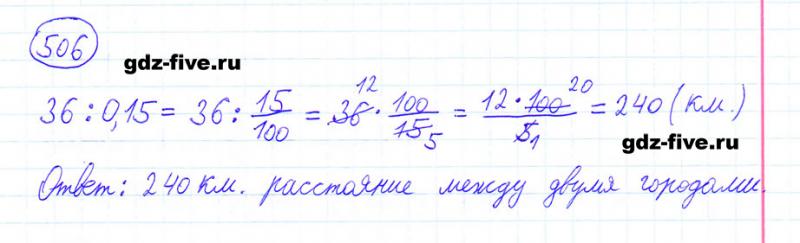 506
gdz-five.ru
36 : 0,15 = 36 : 15/100 = 36 12 · 100/15 5 = 12 · 100 20/5 1 = 240 (км.)
gdz-five.ru
Ответ: 240 км. расстояние между двумя городами.